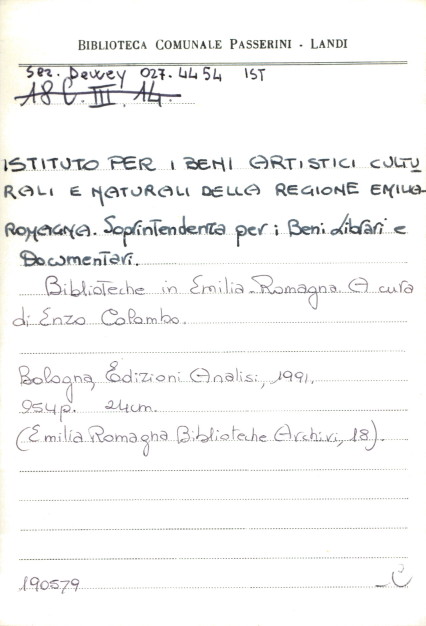 BIBLIOTECA COMUNALE PASSERINI - LANDI
Sez. Dewey 027.4454 IST
18 C. III. 14.
ISTITUTO PER I BENI ARTISTICI CULTU
RALI E NATURALI DELLA REGIONE EMILIA-
ROMAGNA. Soprintendenza per i Beni Librari e
Documentari.
Biblioteche in Emilia-Romagna. A cura
di Enzo Colombo.
Bologna, Edizioni Analisi, 1991.
254p. 24cm.
(Emilia Romagna Biblioteche Archivi, 18).
190579